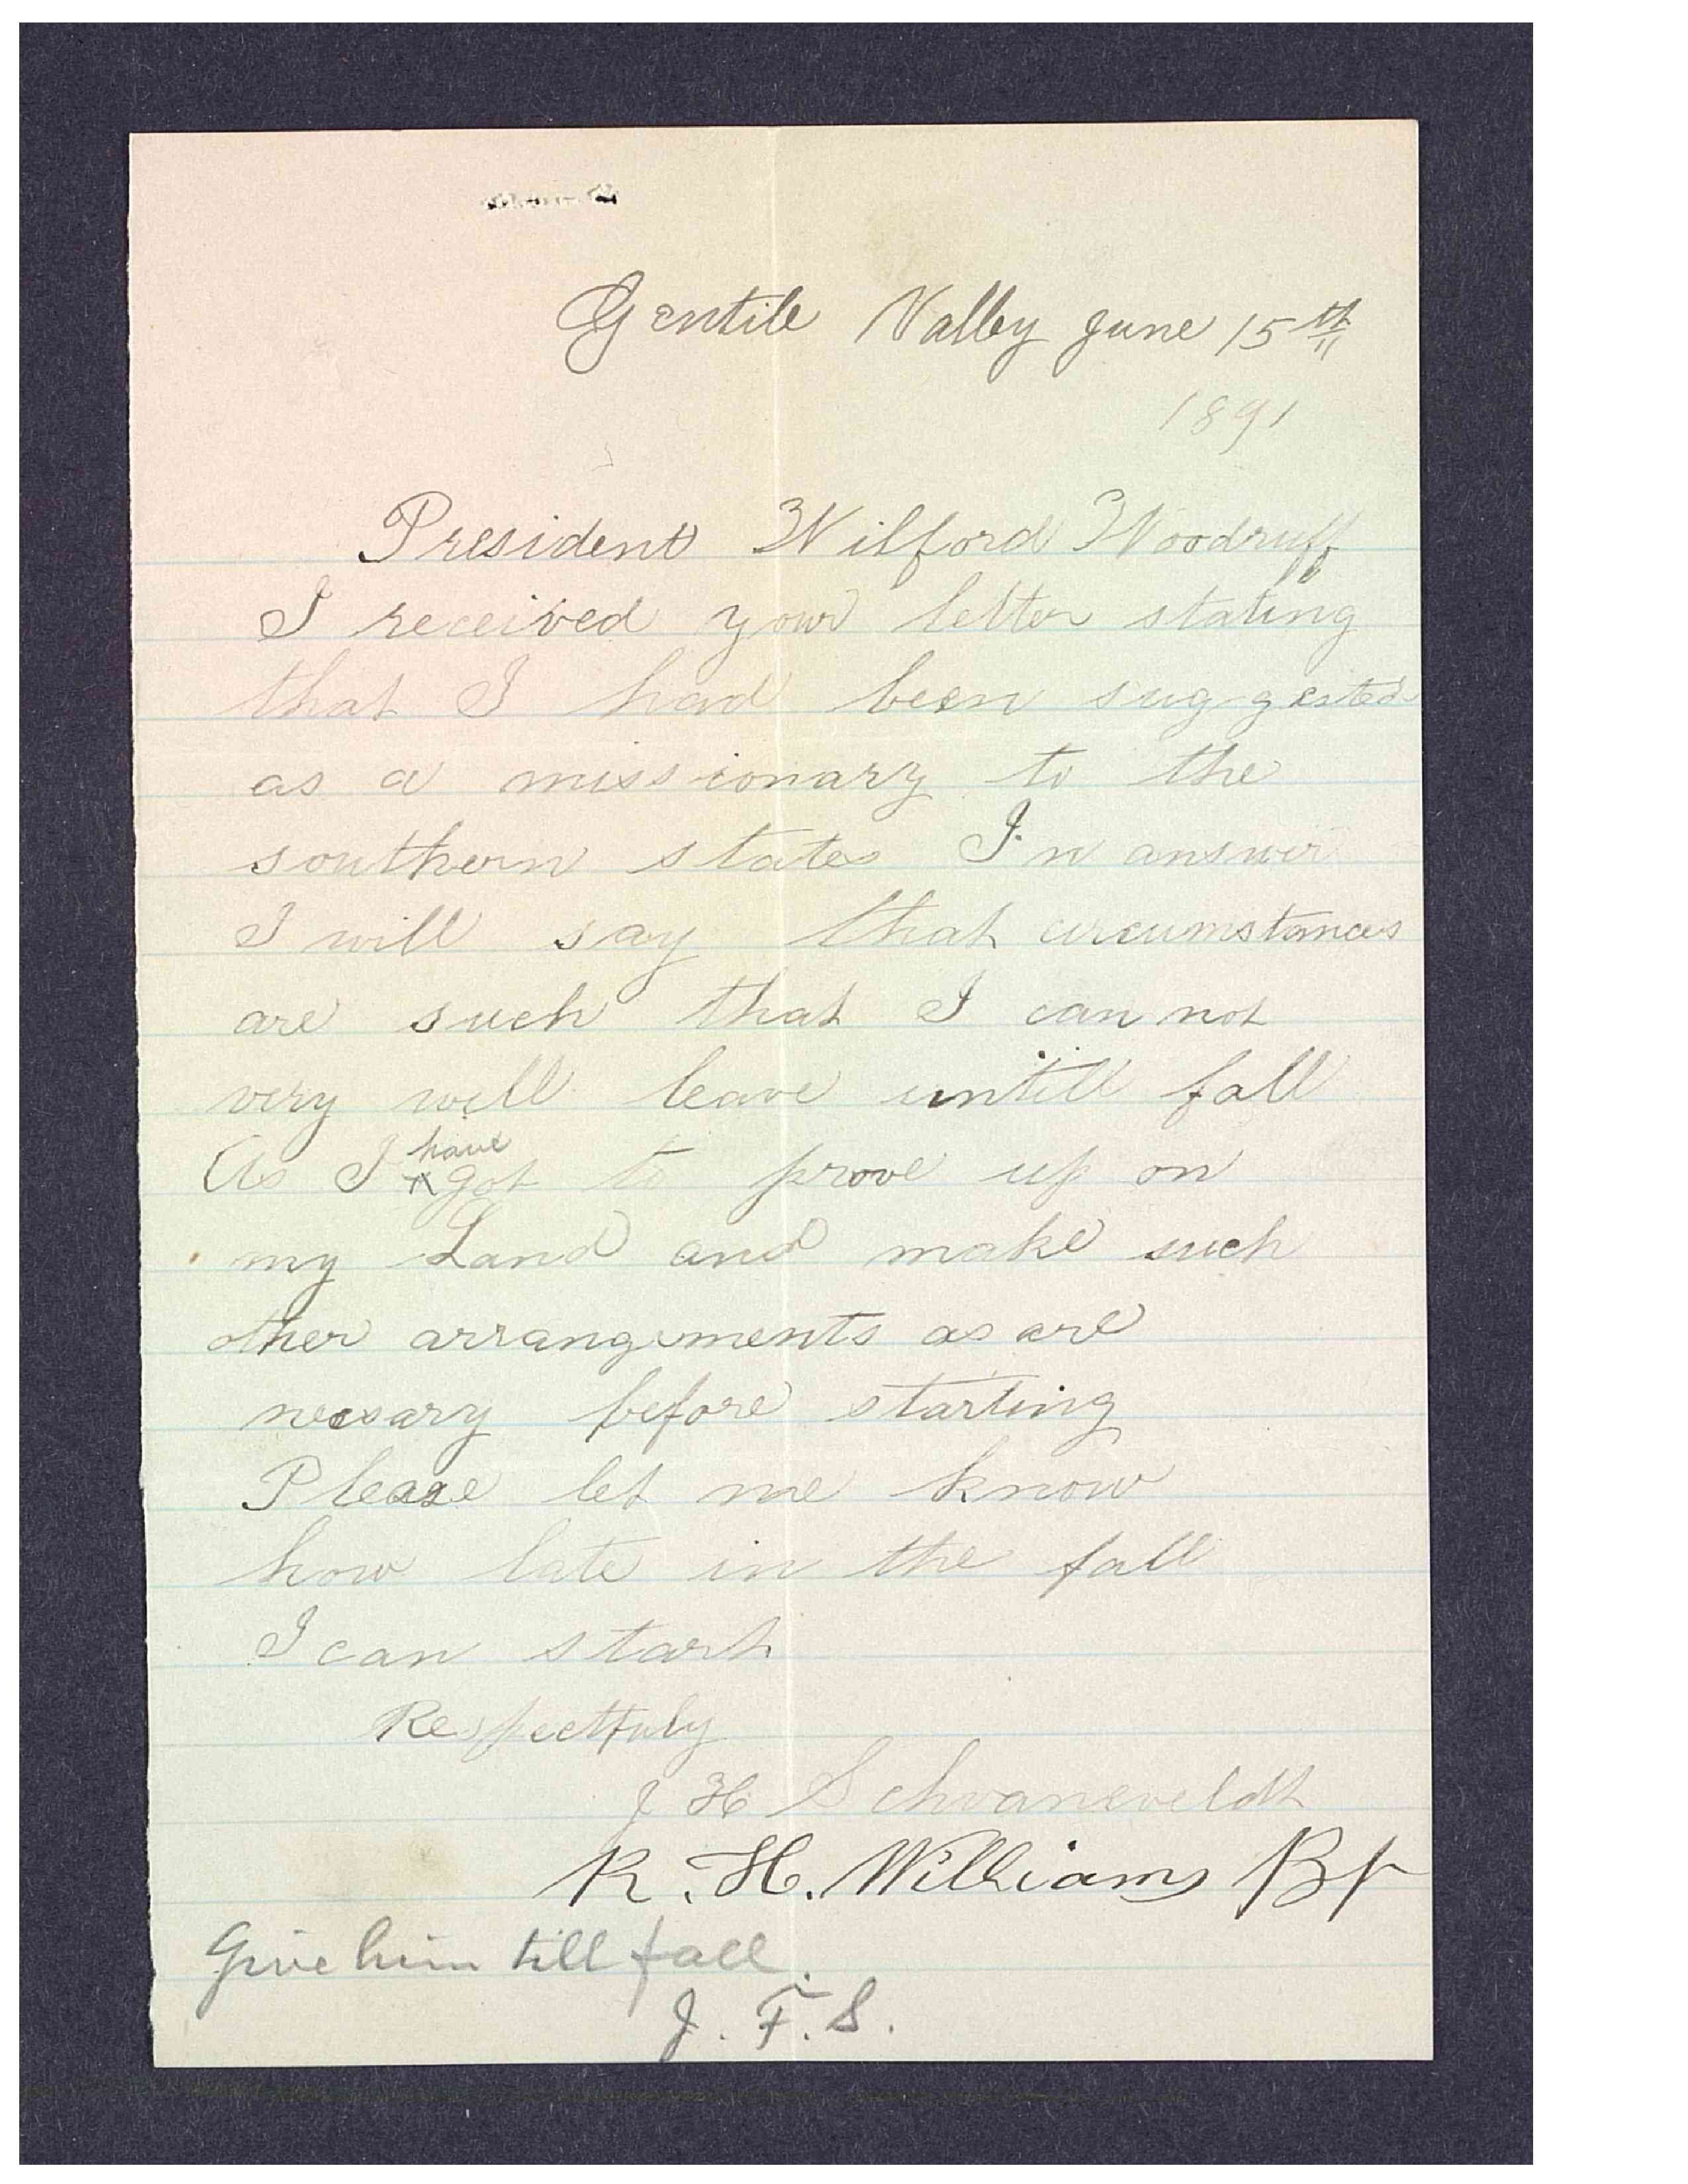 Gentile Valley June 15th
1891
President Wilford Woodruff
I received your letter stating
that I had been suggested
as a missionary to the
southern states In answer
I will say that circumstances
are such that I can not
very well leave untill fall
As I have got to prove up on
my Land and make such
other arrangements as are
necesary before starting
Please let me know
how late in the fall
I can start
Respectfuly
J H Schvaneveldt
R. H. Williams Bp
Give him till fall.
J. F. S.